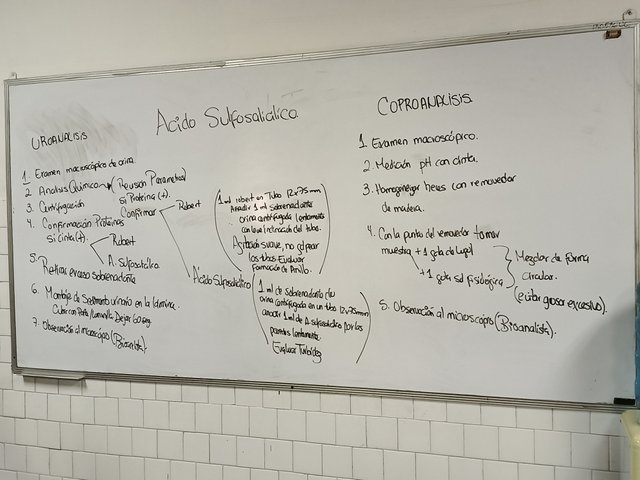 Acido Sulfosalicílico
UROANALISIS
1. Examen macroscópico de orina.
2 Analisis Químico → (Revisar Parametros)
si Proteina (+).
Confirmar
Robert
Acido Sulfosalicílico
3. Centrifugación
4. Confirmación Proteinas
si cinta (+)
Robert
A. Sulfosalicílico
5. Retirar exceso sobrenadante
6. Montaje de Sedimento urinario en la lamina.
Cubrir con Laminilla Dejar
7. Observación al microscópio (Bioanalista).
1 ml robert en Tubo 12x75mm
Añadir 1 ml sobrenadante
orina centrifugada lentamente
con leve inclinación del tubo.
Agitación suave, no golpear
los tubos. Evaluar
Formación de Anillo.
1 ml de sobrenadante de
orina centrifugada en un tubo 12x75mm
añadir 1 ml de A. sulfosalicílico por las
paredes lentamente.
Evaluar Turbidez
COPROANALISIS
1. Examen macroscópico.
2. Medición pH con cinta.
3. Homogenizar heces con removedor
de madera.
4. Con la punta del removedor tomar
muestra + 1 gota de lugol
+ 1 gota sol fisiológica
Mezclar de forma
circular.
(evitar grosor excesivo).
5. Observación al microscópio (Bioanalista).